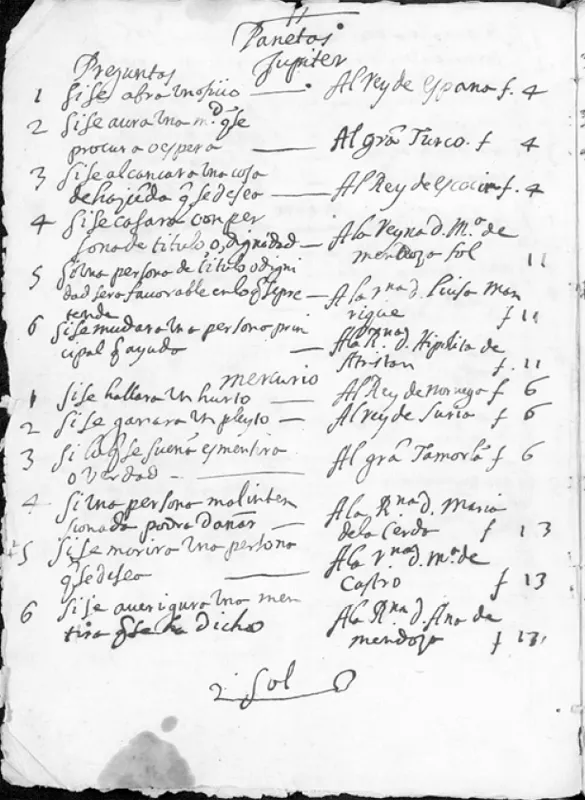 Panetas
Jupiter
Preguntas
1 si se abra un oficio — Al rey de espana f. 4
2 si se aura una md. q̃ se
procura o espera — Al grã Turco. f 4
3 si se alcançara una cosa
de hazienda q̃ se desea — Al Rey de escocia f. 4
4 si se casara con per
sona de titulo o, dignidad — A la Reyna d. Mª de
mendoza sol 11
5 si una persona de titulo o digni
dad sera favorable en lo q̃ se pre — A la rna d. Luisa Man
tende rique f 11
6 si se mudara una persona prin
cipal q̃ ayuda — A la Rna d. Hipolita de
Aristan f. 11
mercurio
1 si se hallara un hurto — Al Rey de noruega f 6
2 si se ganara un pleyto — Al rey de Suria f 6
3 si lo q̃ se suena es mentira
o verdad — Al grã Tamorlã f 6
4 si una persona mal inten
sionada podra dañar — A la Rna d. Maria
de la Cerda f 13
5 si se morira una persona
q̃ se desea — A la rna d. Mª de
Castro f 13
6 si se auerigura una men
tira q̃ se ha dicho — A la Rna d. Ana de
mendoza f 13
Sol